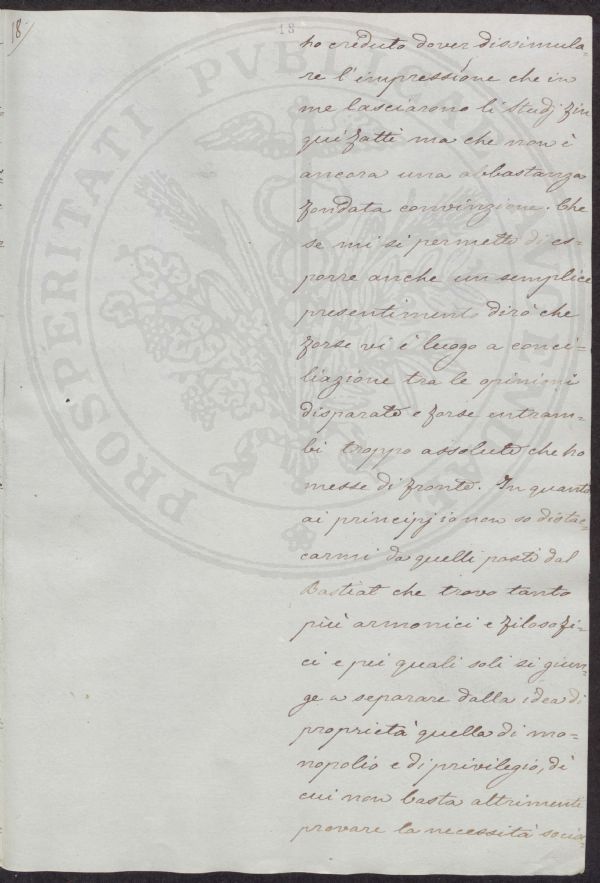 18/
18
PROSPERITATI PVBLICAE AVGENDAE
ho creduto dover dissimula-
re l'impressione che in
me lasciarono li studj fin
quì fatti ma che non è
ancora una abbastanza
fondata convinzione. Che
se mi si permette di es-
porre anche un semplice
presentimento dirò che
forse vi è luogo a conci-
liazione tra le opinioni
disparate e forse entram-
bi troppo assolute che ho
messe di fronte. In quanto
ai principj io non so distac-
carmi da quelli posti dal
Bastiat che trovo tanto
più armonici e filosofi-
ci e pei quali soli si giun-
ge a separare dalla idea di
proprietà quella di mo=
nopolio e di privilegio, di
cui non basta altrimenti
provare la necessità socia-